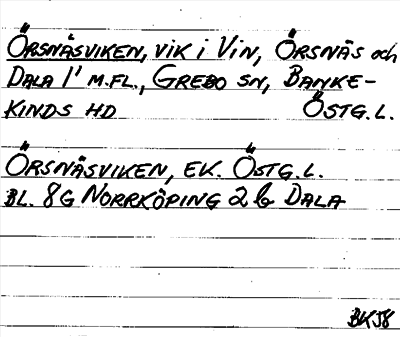 Örsnäsviken, vik i Vin, Örsnäs och
Dala 1¹ m.fl., Grebo sn, Banke-
kinds hd Östg.l.
Örsnäsviken, ek. Östg.l.
Bl. 8G Norrköping 2 b Dala
BK58